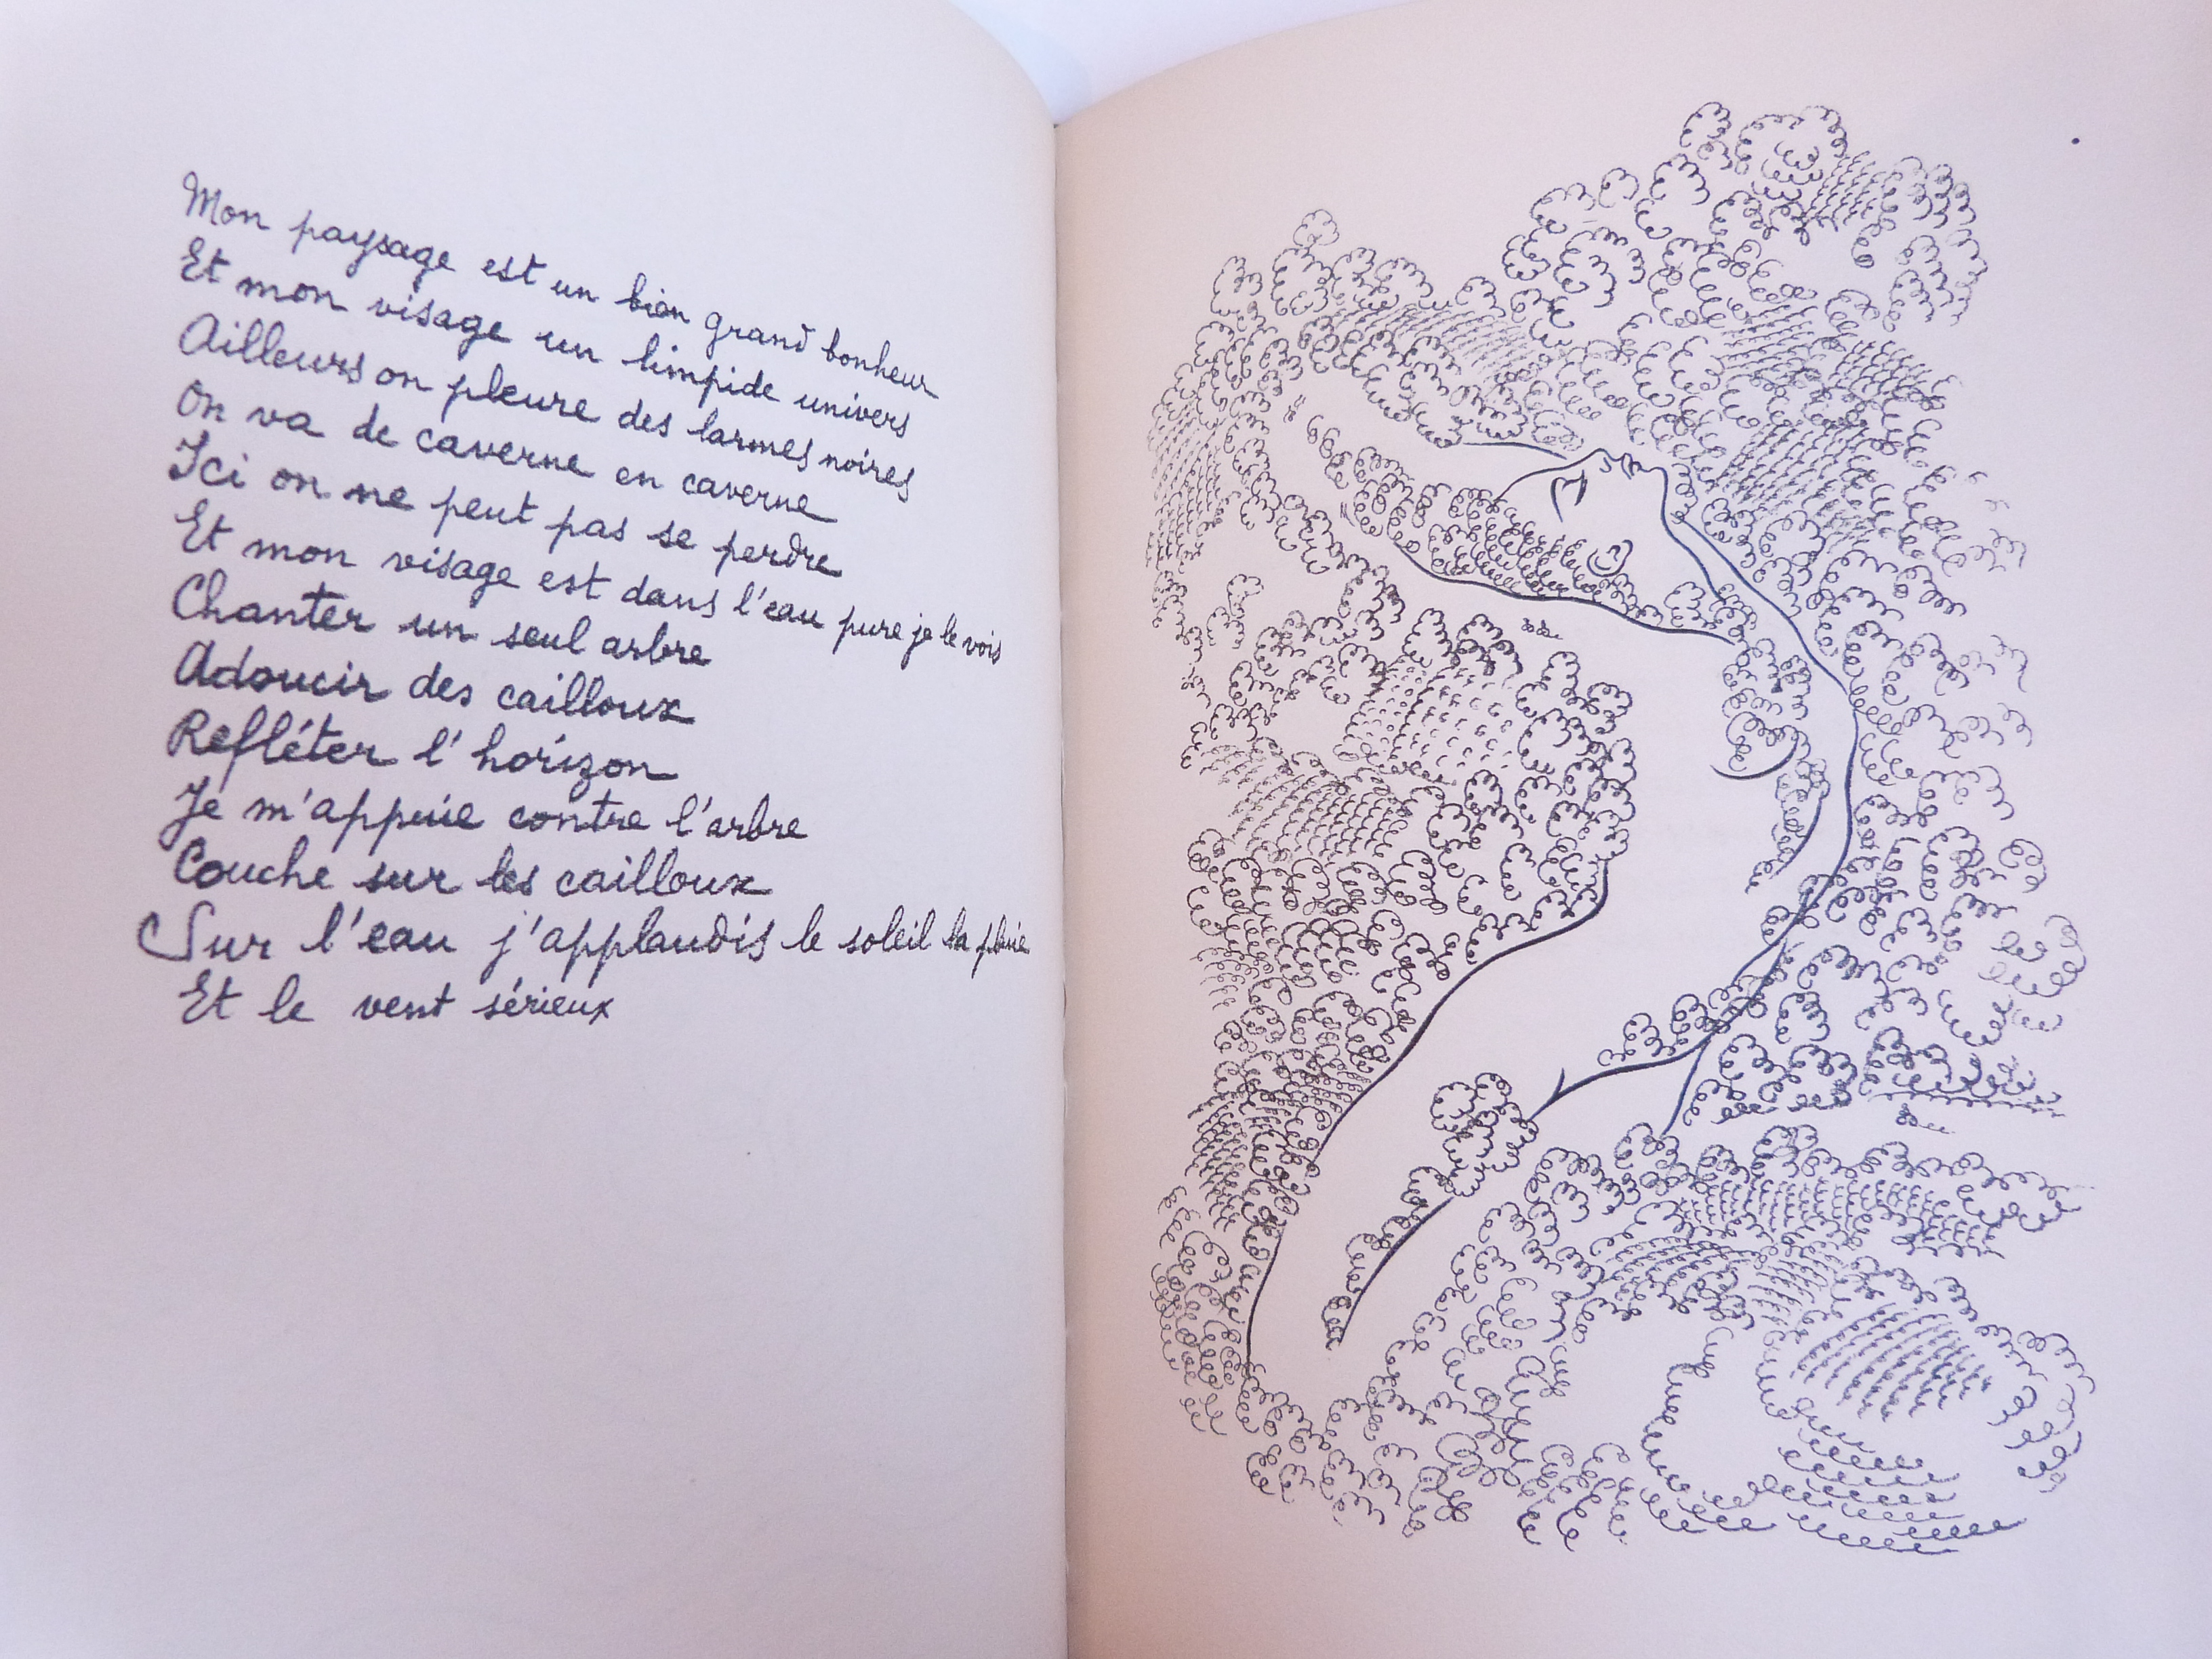 Mon paysage est un bien grand bonheur
Et mon visage un limpide univers
Ailleurs on pleure des larmes noires
On va de caverne en caverne
Ici on ne peut pas se perdre
Et mon visage est dans l'eau pure je le vois
Chanter un seul arbre
Adoucir des cailloux
Refléter l'horizon
Je m'appuie contre l'arbre
Couche sur les cailloux
Sur l'eau j'applaudis le soleil la pluie
Et le vent sérieux